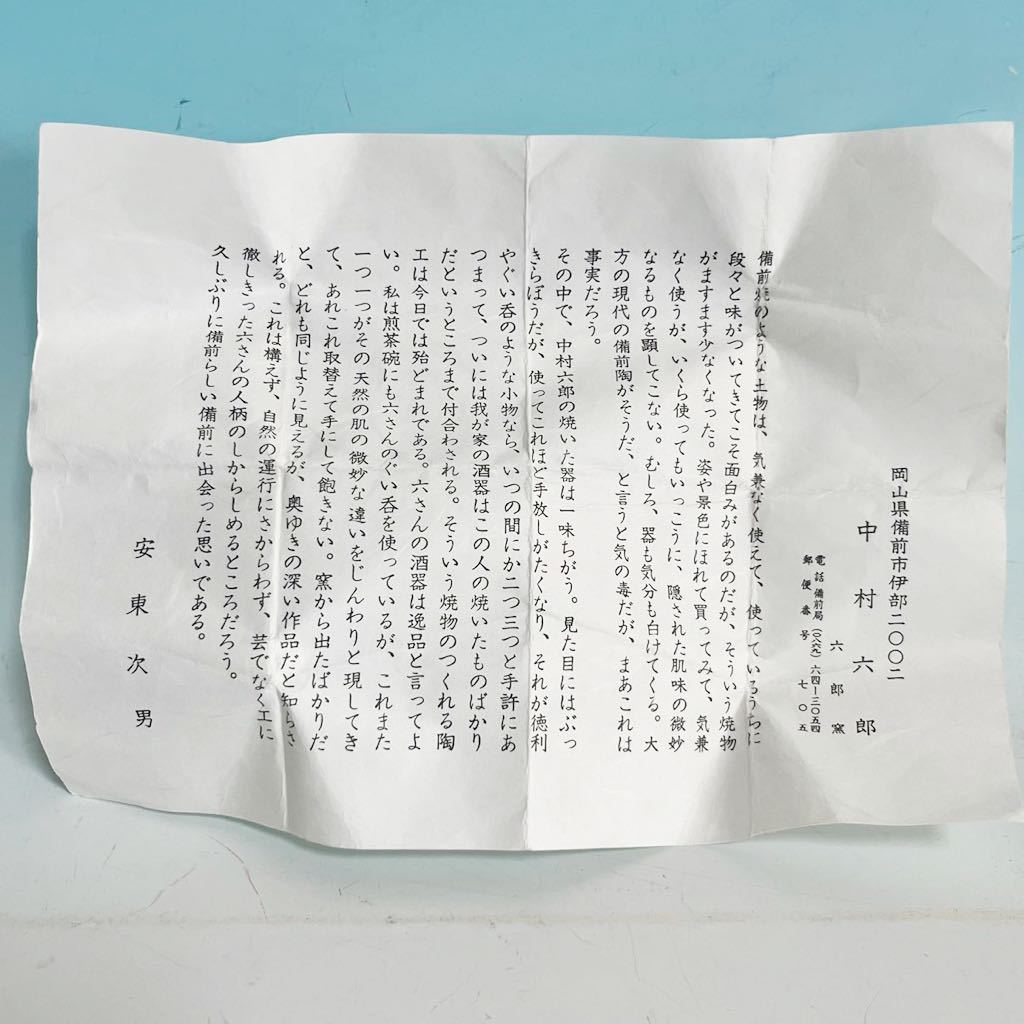 岡山県備前市伊部二〇〇二
中村六郎
六郎窯
電話備前局(〇八六九)六四ー二〇五四
郵便番号七〇五
備前焼のような土物は、気兼なく使えて、使っているうちに
段々と味がついてきてこそ面白みがあるのだが、そういう焼物
がますます少なくなった。姿や景色にほれて買ってみて、気兼
なく使うが、いくら使ってもいっこうに、隠された肌味の微妙
なるものを顕してこない。むしろ、器も気分も白けてくる。大
方の現代の備前陶がそうだ、と言うと気の毒だが、まあこれは
事実だろう。
その中で、中村六郎の焼いた器は一味ちがう。見た目にはぶっ
きらぼうだが、使ってこれほど手放しがたくなり、それが徳利
やぐい呑のような小物なら、いつの間にか二つ三つと手許にあ
つまって、ついには我が家の酒器はこの人の焼いたものばかり
だというところまで付合わされる。そういう焼物のつくれる陶
工は今日では殆どまれである。六さんの酒器は逸品と言ってよ
い。私は煎茶碗にも六さんのぐい呑を使っているが、これまた
一つ一つがその天然の肌の微妙な違いをじんわりと現してき
て、あれこれ取替えて手にして飽きない。窯から出たばかりだ
と、どれも同じように見えるが、奥ゆきの深い作品だと知らさ
れる。これは構えず、自然の運行にさからわず、芸でなく工に
徹しきった六さんの人柄のしからしめるところだろう。
久しぶりに備前らしい備前に出会った思いである。
安東次男